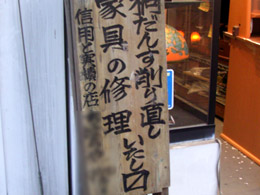 桐だんす削り直し
家具の修理いたし〼
信用と実績の店